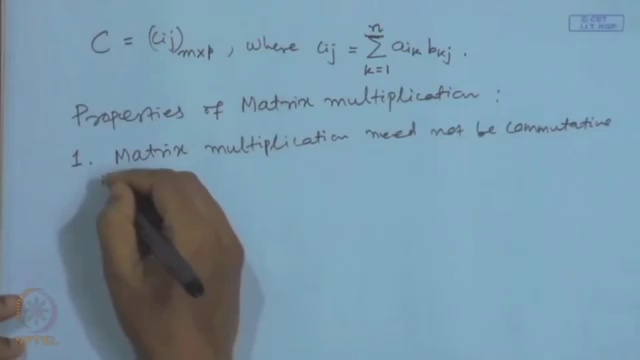 © CET
I.I.T. KGP
C = (cij)m×p, where cij = n∑k=1 aik bkj.
Properties of Matrix multiplication :
1. Matrix multiplication need not be commutative
NPTEL